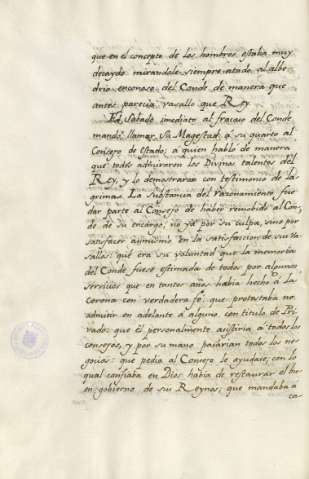 que en el concepto de los hombres estaba muy
decaydo mirandole siempre atado al albe
drio enconoso del Conde de manera que
antes parecia vasallo que Rey.
El Sabado imediato al fracaso del Conde
mandò llamar Su Magestad à su quarto al
Consejo de estado; à quien hablò de manera
que todos admiraron los Divinos talentos del
Rey, y lo demostraron con testimonio de la-
grimas. La sustancia del razonamiento fue
dar parte al Consejo de haber removido al Con-
de de su encargo, no yà por su culpa, sino por
satisfacer asimismo en la satisfaccion de sus va
sallos: que era su voluntad que la memoria
del Conde fuese estimada de todos por algunos
servicios que en tantos años habia hecho à la
Corona con verdadera fè: que protestaba no
admitir en adelante à alguno con titulo de Pri
vado: que èl personalmente asistiria à todos los
consejos, y por su mano pasarian todos los ne
gocios: que pedia al Consejo le ayudase; con lo
qual confiaba en Dios habia de restaurar el bu
en gobierno de sus Reynos; que mandaba à